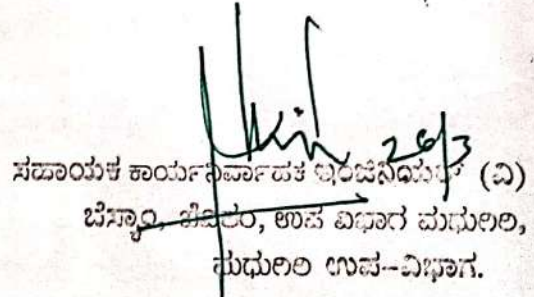 26/3
ಸಹಾಯಕ ಕಾರ್ಯನಿರ್ವಾಹಕ ಇಂಜಿನಿಯರ್ (ವಿ)
ಬೆಸ್ಕಾಂ, ಉಪ ವಿಭಾಗ ಮಧುಗಿರಿ,
ಮಧುಗಿರಿ ಉಪ-ವಿಭಾಗ.